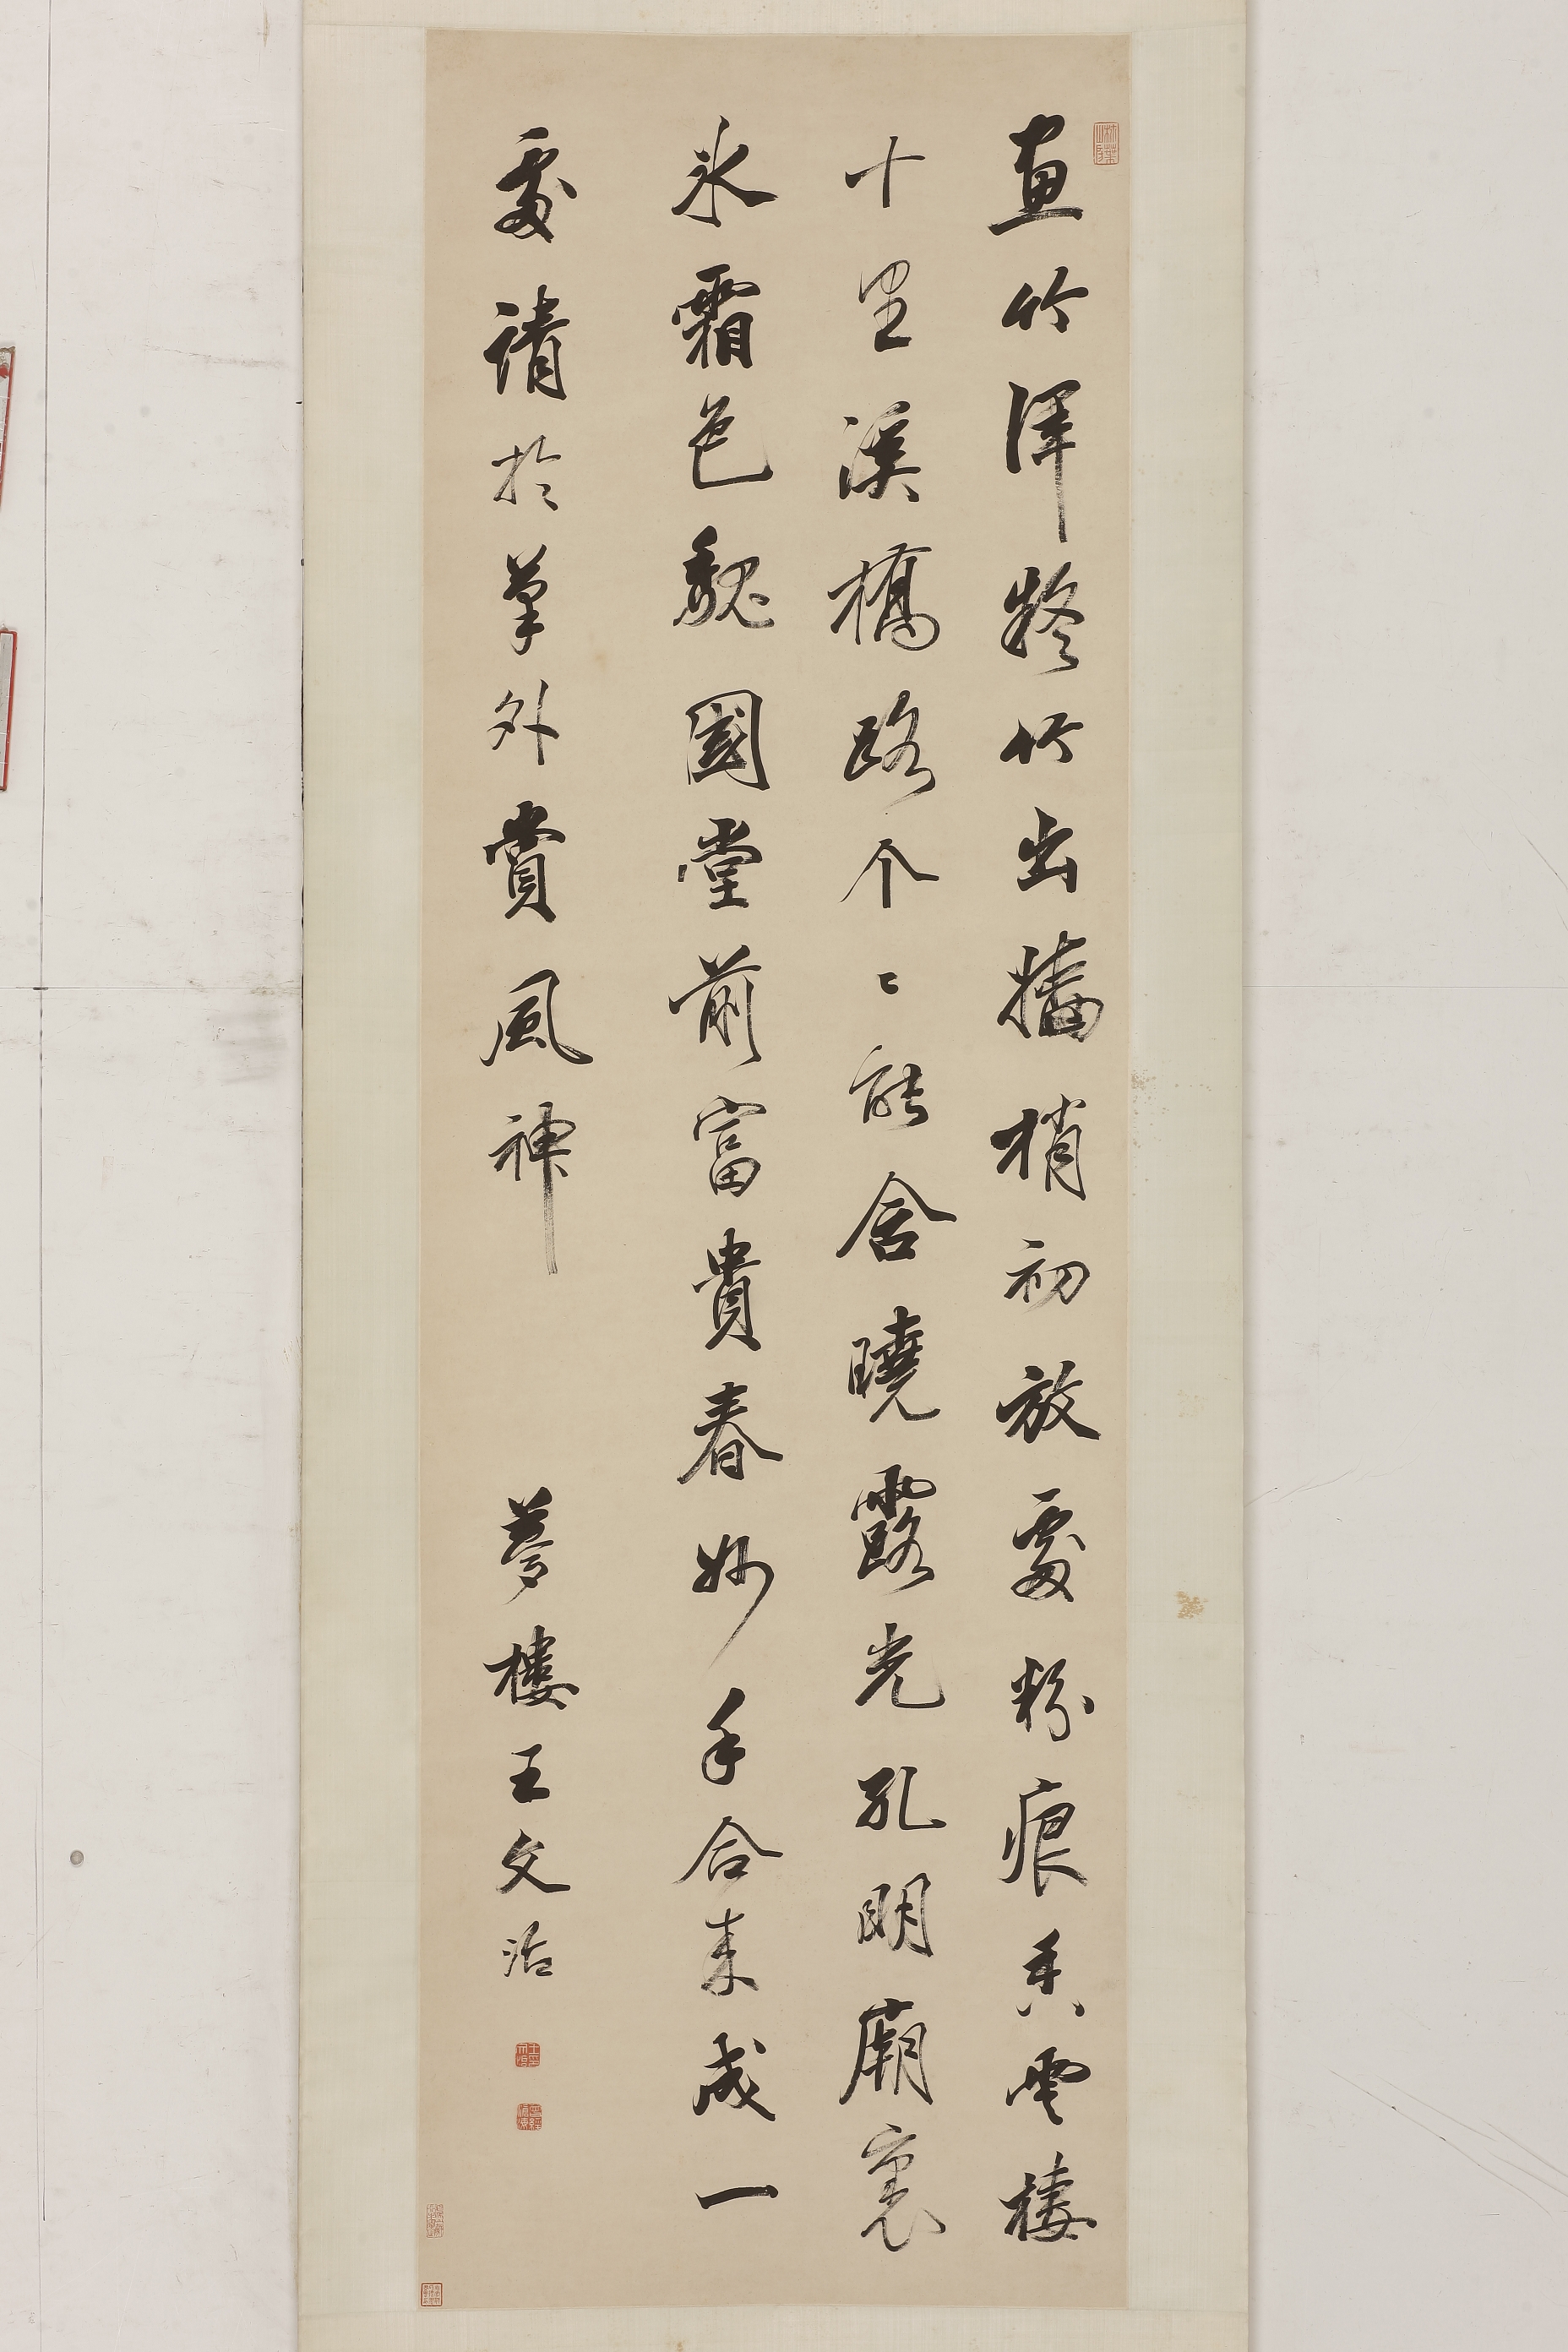 畫竹渾疑竹出牆梢初放處粉痕香雲棲
十里溪橋路个〻能含曉露光孔明廟裏
氷霜色魏國堂前富貴春妙手合来成一
處請於筆外賞風神
夢樓王文治